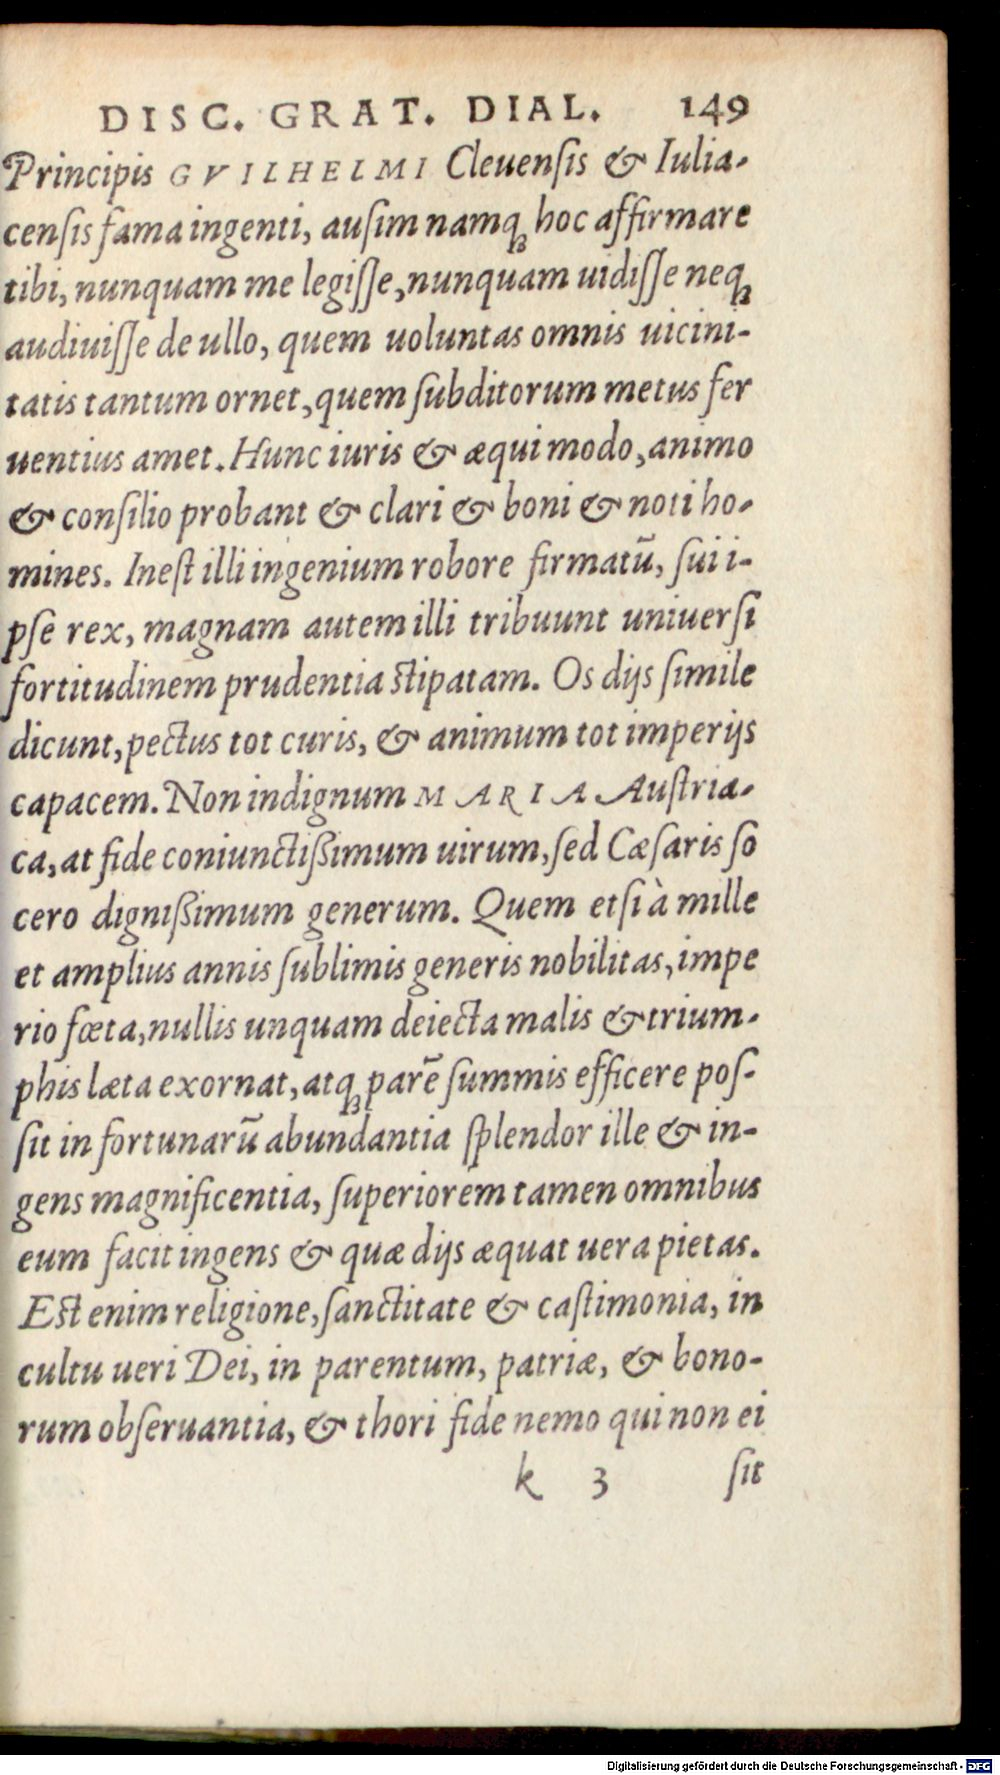 DISC. GRAT. DIAL. 149
Principis GVILHELMI Cleuenſis & Iulia-
cenſis fama ingenti, auſim namq; hoc affirmare
tibi, nunquam me legiſſe, nunquam uidiſſe neq;
audiuiſſe de ullo, quem uoluntas omnis uicini-
tatis tantum ornet, quem ſubditorum metus fer
uentius amet. Hunc iuris & æqui modo, animo
& conſilio probant & clari & boni & noti ho-
mines. Ineſt illi ingenium robore firmatũ, ſui i-
pſe rex, magnam autem illi tribuunt uniuerſi
fortitudinem prudentia ſtipatam. Os dijs ſimile
dicunt, pectus tot curis, & animum tot imperijs
capacem. Non indignum MARIA Auſtria-
ca, at fide coniunctißimum uirum, ſed Cæſaris ſo
cero dignißimum generum. Quem etſi à mille
et amplius annis ſublimis generis nobilitas, impe
rio fœta, nullis unquam deiecta malis & trium-
phis læta exornat, atq; parẽ ſummis efficere poſ-
ſit in fortunarũ abundantia ſplendor ille & in-
gens magnificentia, ſuperiorem tamen omnibus
eum facit ingens & quæ dijs æquat uera pietas.
Eſt enim religione, ſanctitate & caſtimonia, in
cultu ueri Dei, in parentum, patriæ, & bono-
rum obſeruantia, & thori fide nemo qui non ei
k 3 ſit
Digitalisierung gefördert durch die Deutsche Forschungsgemeinschaft - DFG